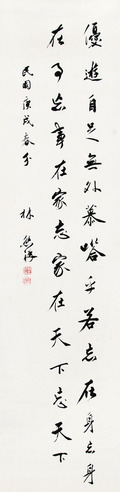 優遊自足無外慕嗒乎若忘在身忘身
在事忘事在家忘家在天下忘天下
民國庚戌春分
林